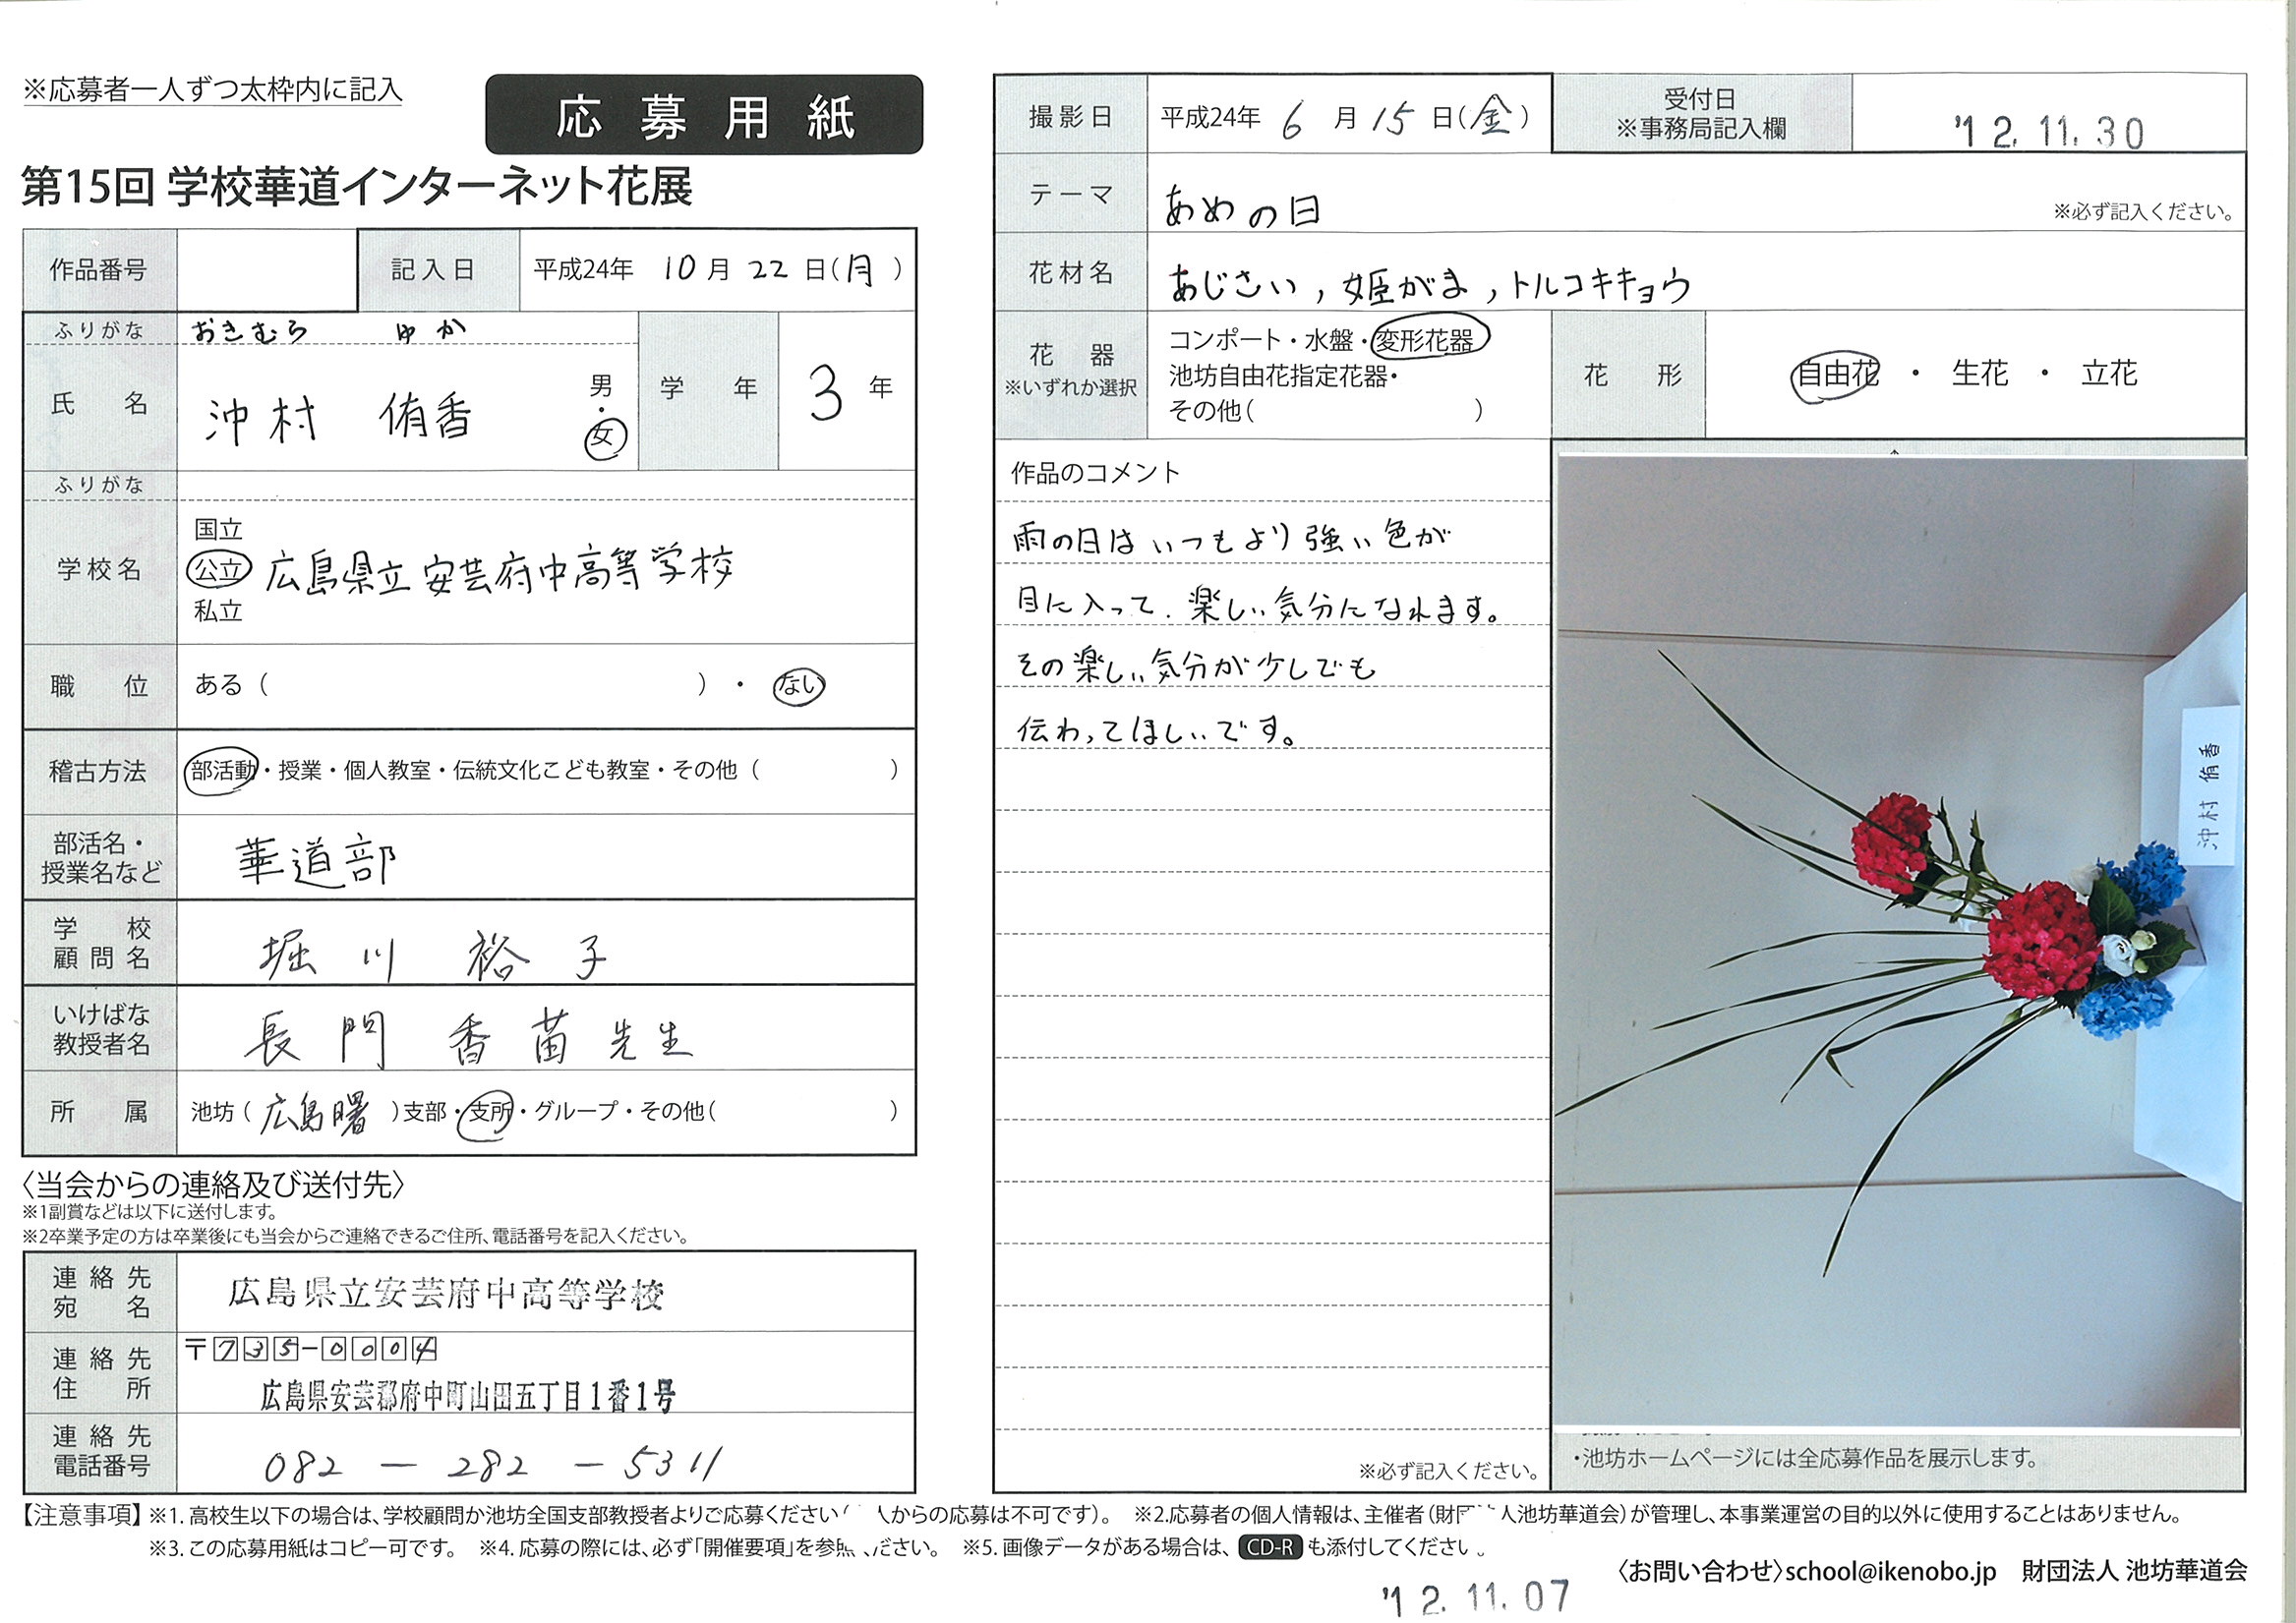 ※応募者一人ずつ太枠内に記入
応募用紙
第15回 学校華道インターネット花展
作品番号
記入日 平成24年 10月 22日(月)
ふりがな おきむら ゆか
氏名 沖村 侑香 男・女
学年 3年
ふりがな
学校名 国立
公立 広島県立安芸府中高等学校
私立
職位 ある( )・ない
稽古方法 部活動・授業・個人教室・伝統文化こども教室・その他( )
部活名・
授業名など 華道部
学校
顧問名 堀川 裕子
いけばな
教授者名 長門 香苗 先生
所属 池坊(広島曙)支部・支所・グループ・その他( )
〈当会からの連絡及び送付先〉
※1副賞などは以下に送付します。
※2卒業予定の方は卒業後にも当会からご連絡できるご住所、電話番号を記入ください。
連絡先
宛名 広島県立安芸府中高等学校
連絡先
住所 〒735-0004
広島県安芸郡府中町山田五丁目1番1号
連絡先
電話番号 082-282-5311
撮影日 平成24年 6月 15日(金)
受付日
※事務局記入欄 '12.11.30
テーマ あめの日 ※必ず記入ください。
花材名 あじさい,姫がま,トルコキキョウ
花器
※いずれか選択
コンポート・水盤・変形花器
池坊自由花指定花器・
その他( )
花形 自由花・生花・立花
作品のコメント
雨の日はいつもより強い色が
目に入って、楽しい気分になれます。
その楽しい気分が少しでも
伝わってほしいです。
※必ず記入ください。
沖村 侑香
・池坊ホームページには全応募作品を展示します。
【注意事項】※1.高校生以下の場合は、学校顧問か池坊全国支部教授者よりご応募ください( 人からの応募は不可です)。 ※2.応募者の個人情報は、主催者(財団 人池坊華道会)が管理し、本事業運営の目的以外に使用することはありません。
※3.この応募用紙はコピー可です。 ※4.応募の際には、必ず「開催要項」を参照 ださい。 ※5.画像データがある場合は、CD-Rも添付してください。
〈お問い合わせ〉school@ikenobo.jp 財団法人 池坊華道会
'12.11.07